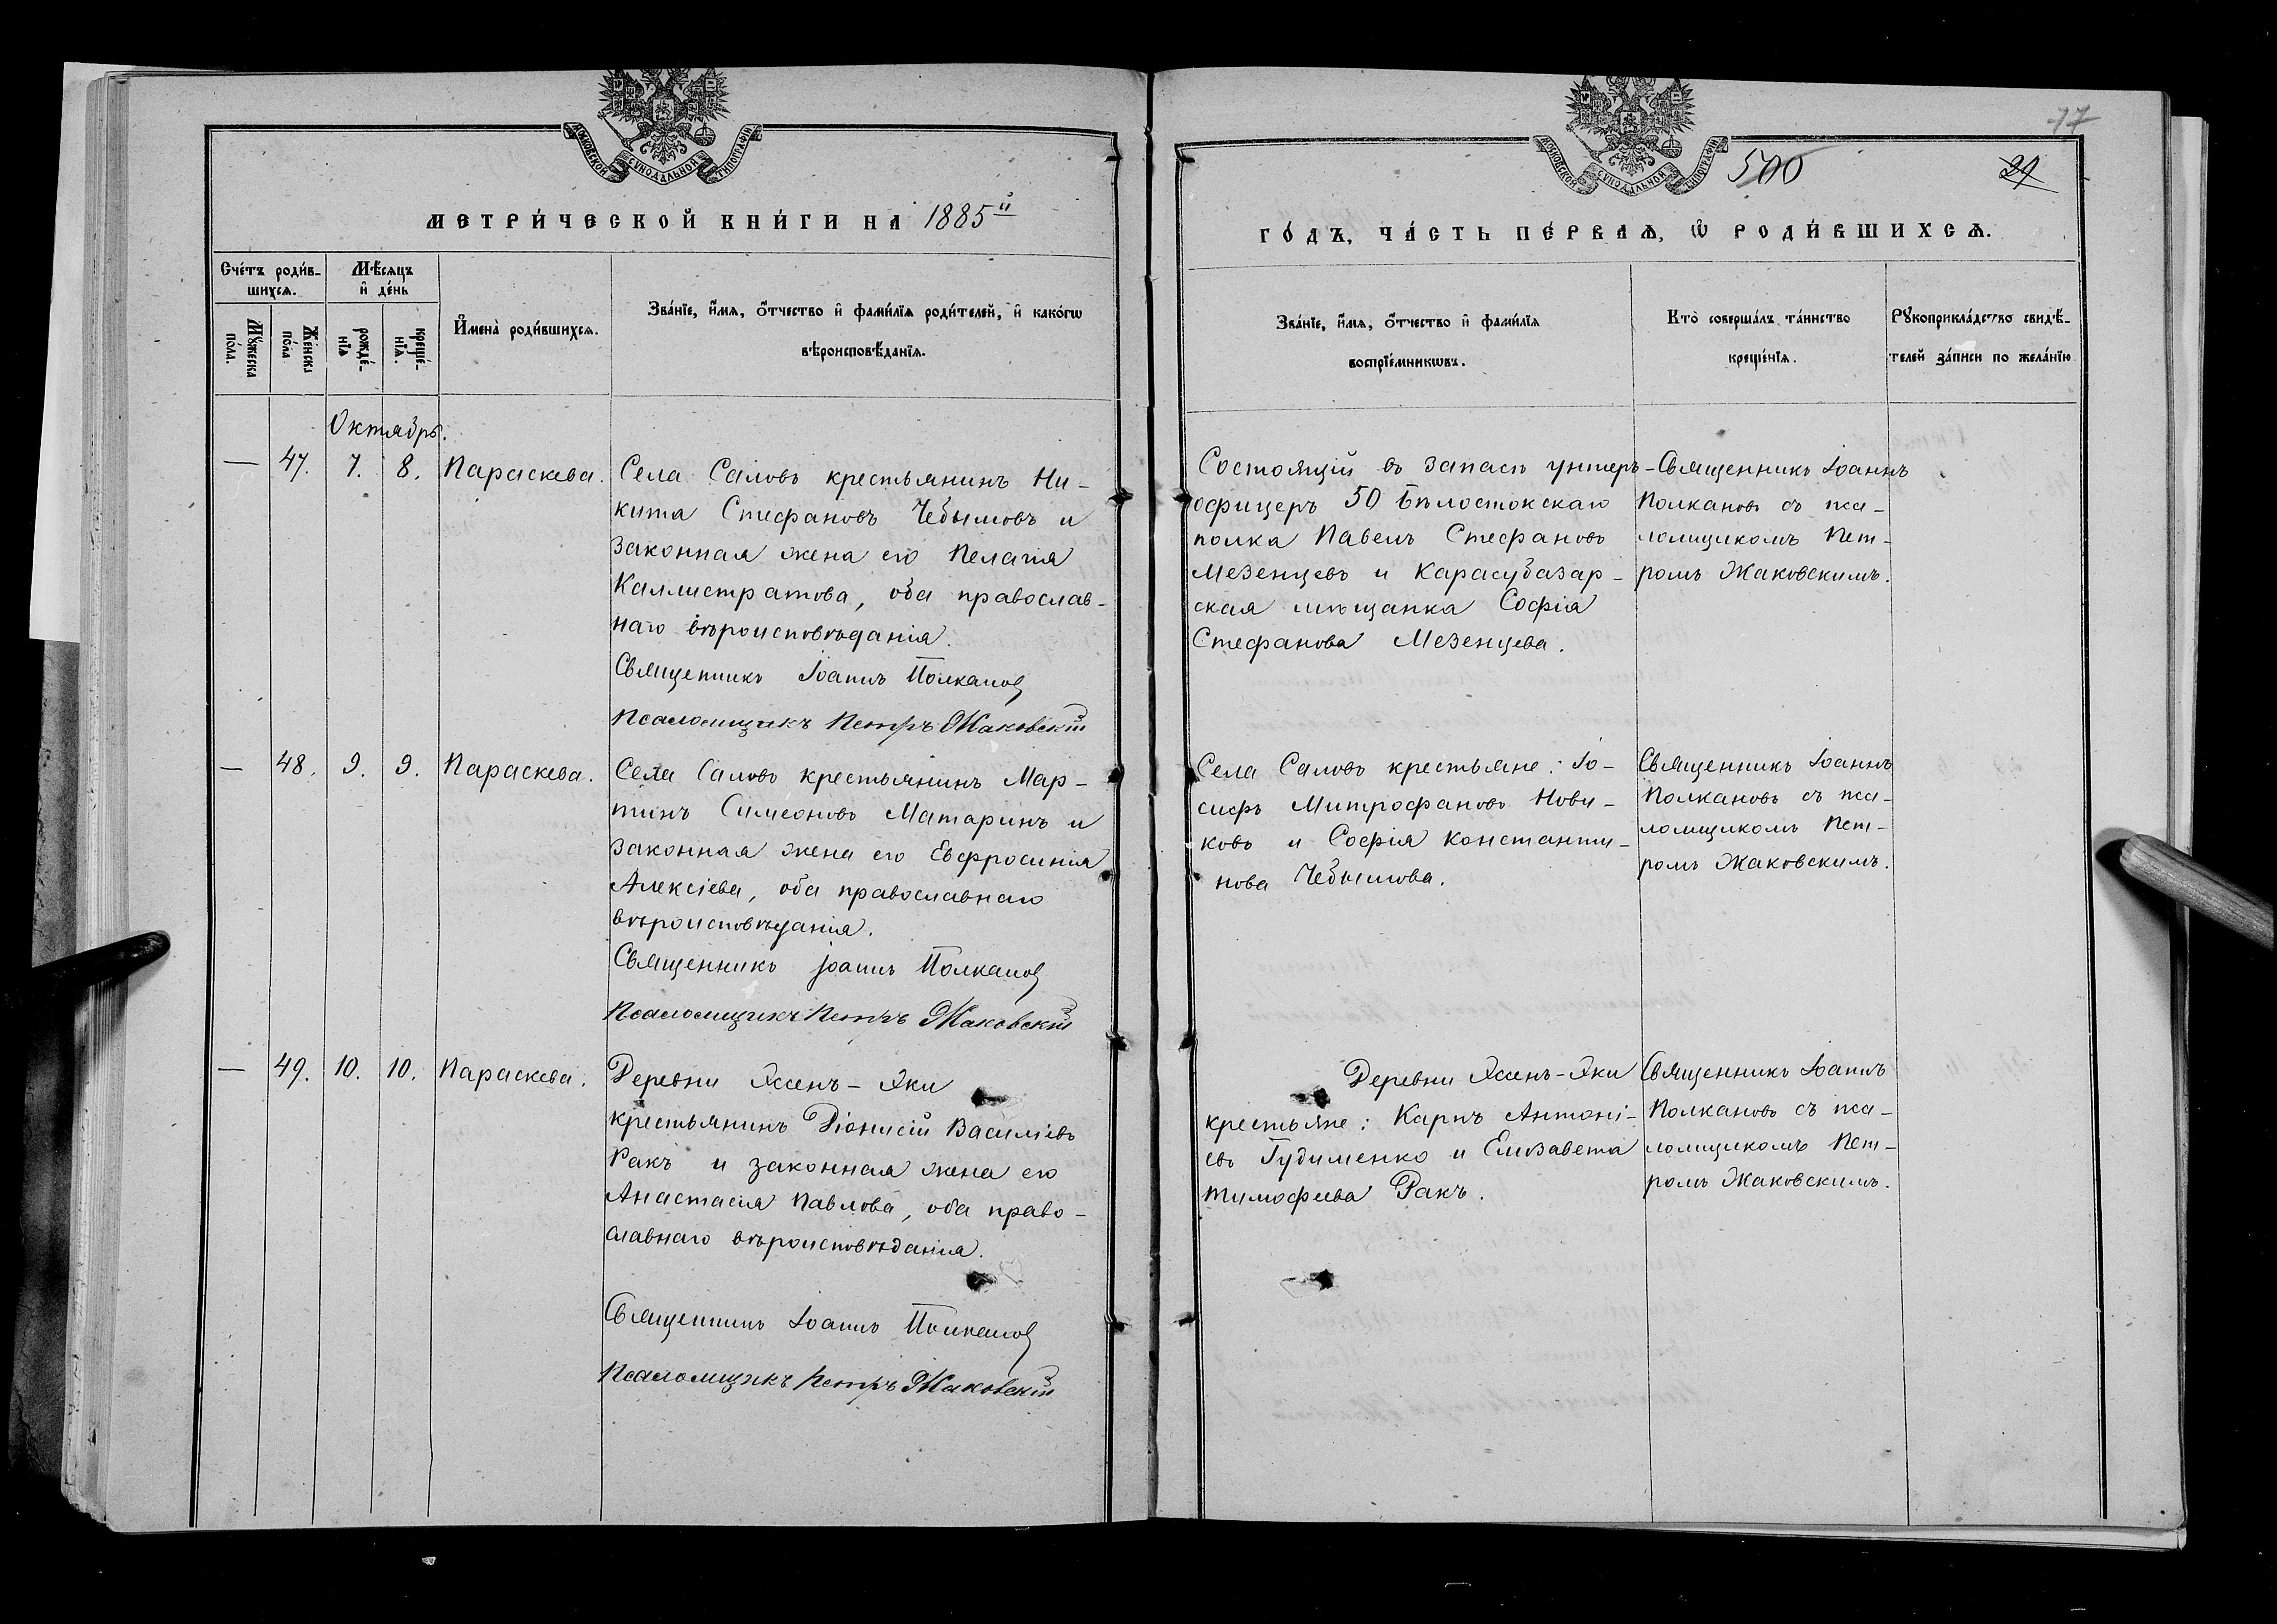 МОСКОВСКОЙ СѴНОДАЛЬНОЙ ТИПОГРАФІИ
МЕТРИ́ЧЕСКОЙ КНИ́ГИ НА 1885й
Сче́тъ роди́в-
шихсѧ.
Мѣ́сѧцъ
и҆ де́нь
Мꙋ́жеска
по́ла.
Же́нска
по́ла
рожде́-
нїѧ
креще́-
нїѧ.
И҆мена̀ роди́вшихсѧ.
Зва́нїе, и҆́мѧ, ѻ҆́тчество и҆ фами́лїѧ роди́телей, и҆ како́гѡ
вѣроисповѣ́данїѧ.
Октябрь.
— 47. 7. 8. Параскева.
Села Саловъ крестьянинъ Ни-
кита Стефановъ Чебышовъ и
законная жена его Пелагія
Каллистратова, оба православ-
наго вѣроисповѣданія.
Священникъ Іоаннъ Полкановъ
Псаломщикъ Петръ Жаковскій
— 48. 9. 9. Параскева.
Села Саловъ крестьянинъ Мар-
тинъ Симеоновъ Матаринъ и
законная жена его Евфросинія
Алексіева, оба православнаго
вѣроисповѣданія.
Священникъ Іоаннъ Полкановъ
Псаломщикъ Петръ Жаковскій
— 49. 10. 10. Параскева.
Деревни Ясенъ-Яки
крестьянинъ Діонисій Василіевъ
Ракъ и законная жена его
Анастасія Павлова, оба право-
славнаго вѣроисповѣданія.
Священникъ Іоаннъ Полкановъ
Псаломщикъ Петръ Жаковскій
МОСКОВСКОЙ СѴНОДАЛЬНОЙ ТИПОГРАФІИ
17
500
29
ГО́ДЪ, ЧА́СТЬ ПЕ́РВАѦ, Ѡ҆ РОДИ́ВШИХСѦ.
Зва́нїе, и҆́мѧ, ѻ҆́тчество и҆ фами́лїѧ
воспрїе́мникѡвъ.
Кто̀ соверша́лъ та́инство
креще́нїѧ.
Рꙋкоприкла́дство свидѣ́-
телей за́писи по жела́нїю
Состоящій въ запасѣ унтеръ-
офицеръ 50 Бѣлостокскаго
полка Павелъ Стефановъ
Мезенцевъ и Карасубазар-
ская мѣщанка Софія
Стефанова Мезенцева.
Священникъ Іоаннъ
Полкановъ съ пса-
ломщикомъ Пет-
ромъ Жаковскимъ.
Села Саловъ крестьяне: Іо-
сифъ Митрофановъ Нови-
ковъ и Софія Константи-
нова Чебышова.
Священникъ Іоаннъ
Полкановъ съ пса-
ломщикомъ Пет-
ромъ Жаковскимъ.
Деревни Ясенъ-Яки
крестьяне: Карпъ Антоні-
евъ Гудименко и Елизавета
Тимофеева Ракъ.
Священникъ Іоаннъ
Полкановъ съ пса-
ломщикомъ Пет-
ромъ Жаковскимъ.